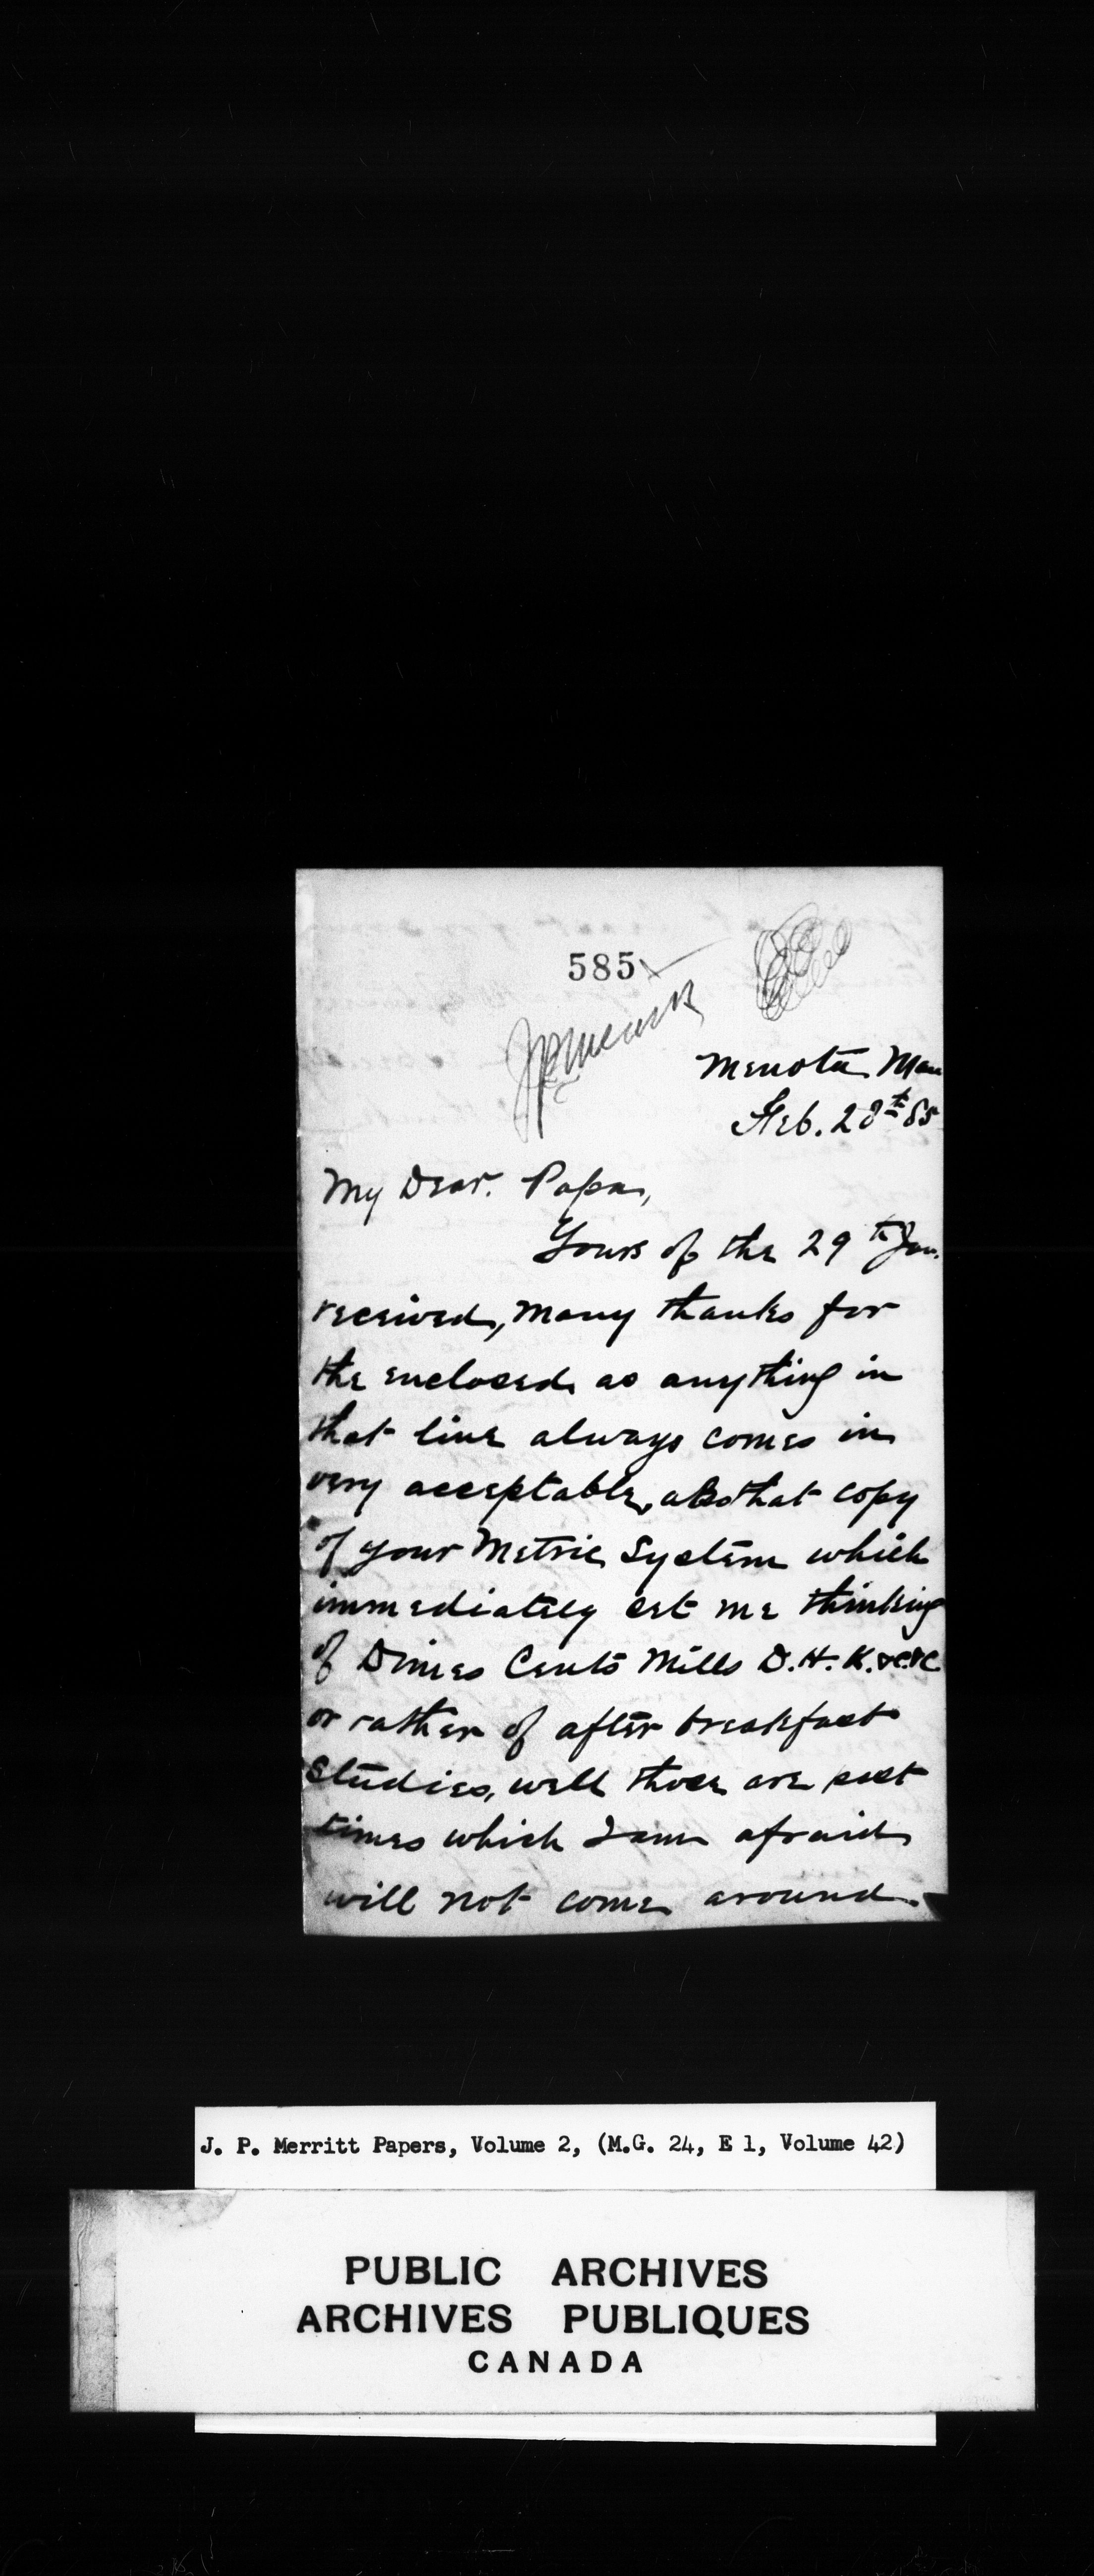 585
JPMerritt
Menota Man
Feb. 28th 85
My Dear. Papa,
Yours of the 29th Jan.
received, many thanks for
the enclosed as anything in
that line always comes in
very acceptable, also that copy
of your Metric System which
immediately set me thinking
of Dimes Cents Mills D. H. K. &c &c
or rather of after breakfast
studies, well those are past
times which I am afraid
will not come around.
J. P. Merritt Papers, Volume 2, (M.G. 24, E 1, Volume 42)
PUBLIC ARCHIVES
ARCHIVES PUBLIQUES
CANADA